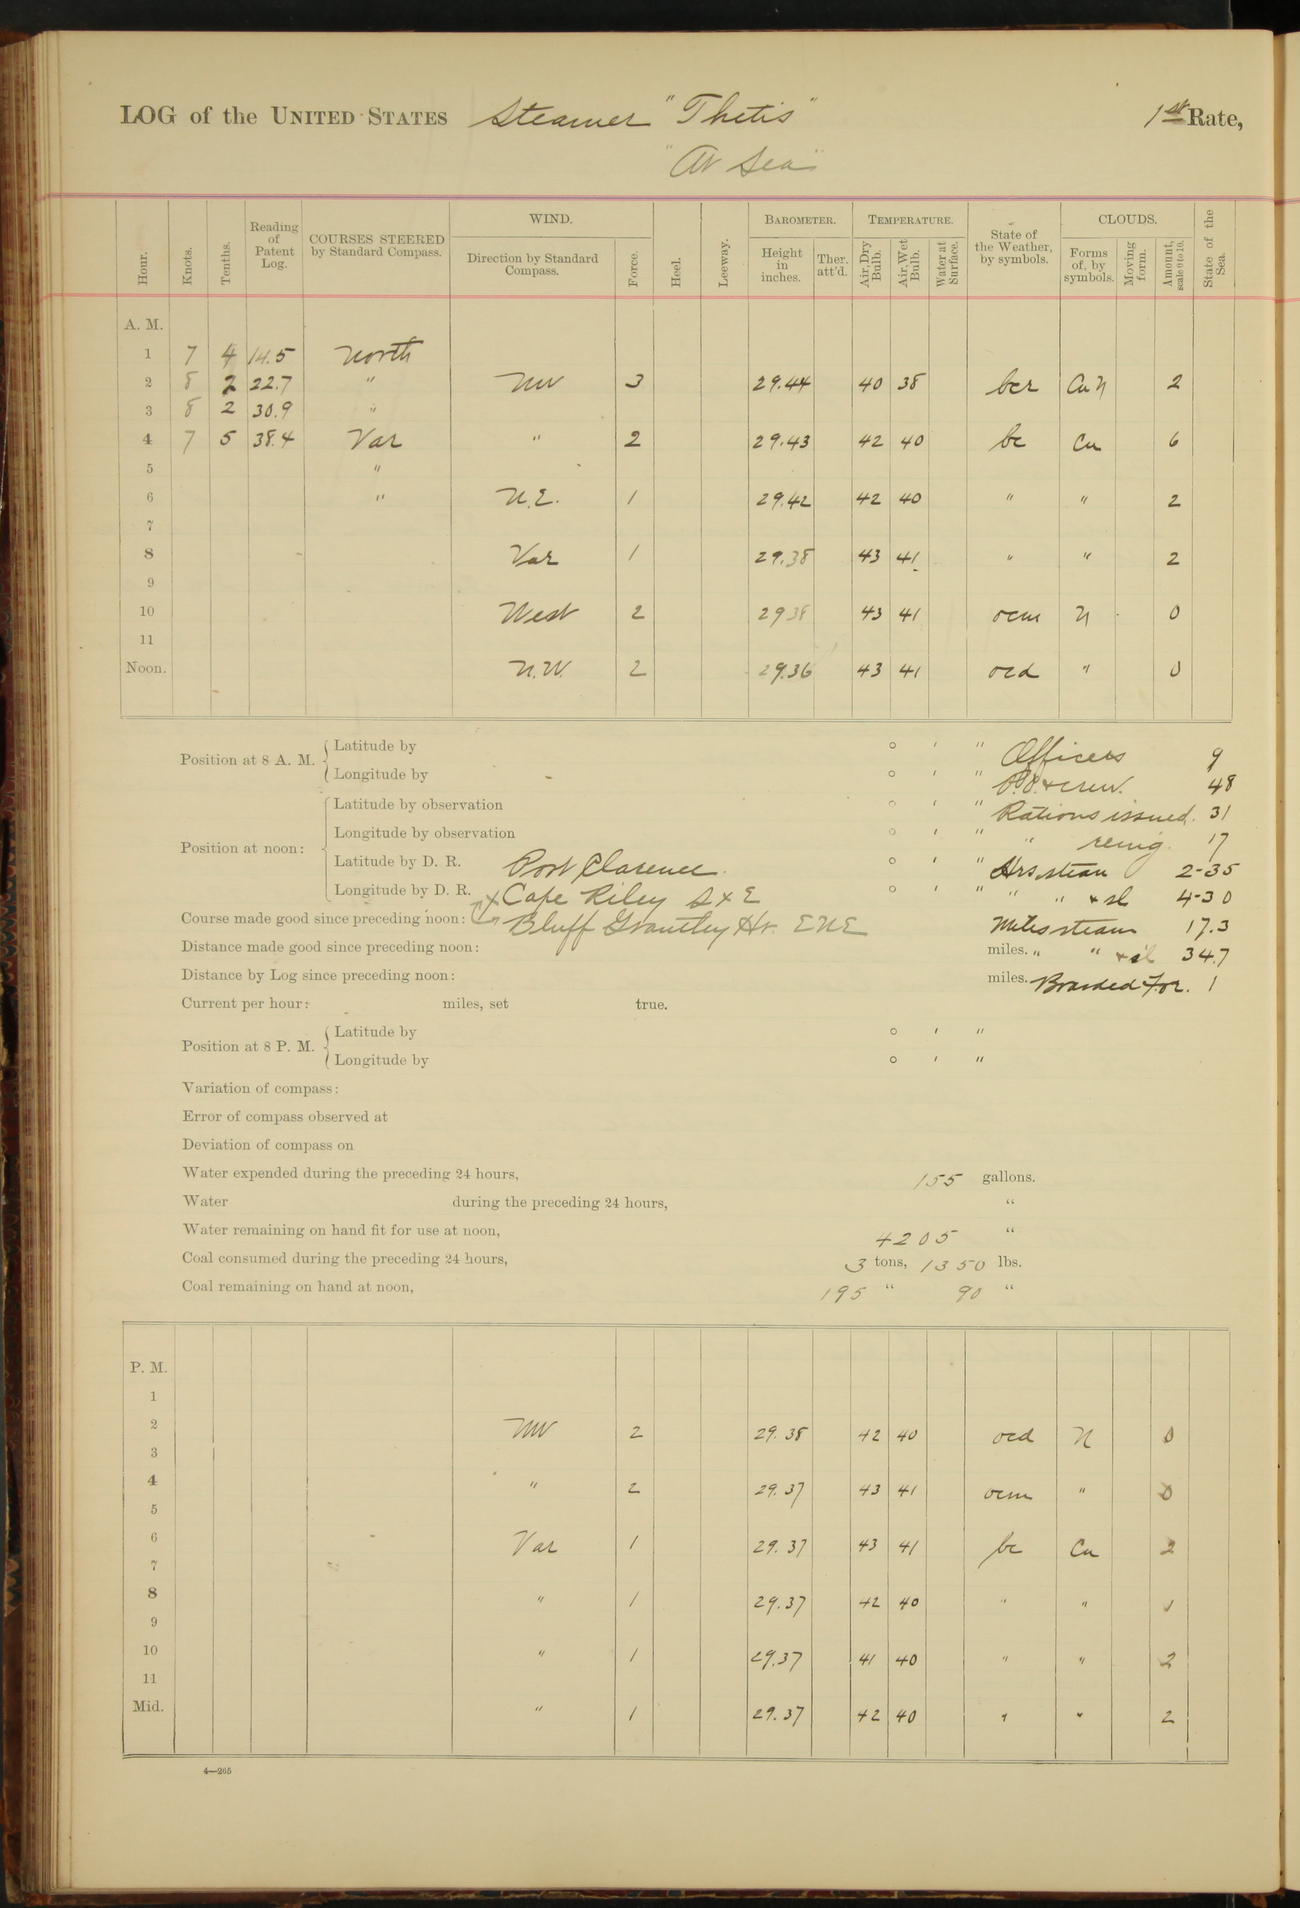 LOG of the UNITED STATES Steamer "Thetis" 1st Rate,
"At Sea"
Hour. Knots. Tenths. Reading of Patent Log. COURSES STEERED by Standard Compass. WIND. Direction by Standard Compass. Force. Heel. Leeway. BAROMETER. Height in inches. Ther. att'd. TEMPERATURE. Air, Dry Bulb. Air, Wet Bulb. Water at Surface. State of the Weather, by symbols. CLOUDS. Forms of, by symbols. Moving form. Amount, scale 0 to 10. State of the Sea.
A. M.
1 7 4 14.5 North
2 8 2 22.7 " NW 3 29.44 40 38 bcr Cu N 2
3 8 2 30.9 "
4 7 5 38.4 Var " 2 29.43 42 40 bc Cu 6
5 "
6 " N.E. 1 29.42 42 40 " " 2
7
8 Var 1 29.38 43 41 " " 2
9
10 West 2 29 38 43 41 ocm N 0
11
Noon. N.W. 2 29.36 43 41 ocd " 0
Position at 8 A. M. Latitude by ° ' " Officers 9
Longitude by ° ' " P.O. & crew. 48
Position at noon: Latitude by observation ° ' " Rations issued. 31
Longitude by observation ° ' " " 17
Latitude by D. R. Port Clarence. ° ' " Hrs steam 2-35
Longitude by D. R. Cape Riley S x E ° ' " " " & sl 4-30
Course made good since preceding noon: Bluff Grantley Hr. ENE Miles steam 17.3
Distance made good since preceding noon: miles. " " & sl 34.7
Distance by Log since preceding noon: miles. Boarded For. 1
Current per hour: miles, set true.
Position at 8 P. M. Latitude by ° ' "
Longitude by ° ' "
Variation of compass:
Error of compass observed at
Deviation of compass on
Water expended during the preceding 24 hours, 155 gallons.
Water during the preceding 24 hours, "
Water remaining on hand fit for use at noon, 4205 "
Coal consumed during the preceding 24 hours, 3 tons, 1350 lbs.
Coal remaining on hand at noon, 195 " 90 "
P. M.
1
2 NW 2 29.38 42 40 ocd N 0
3
4 " 2 29.37 43 41 ocm " 0
5
6 Var 1 29.37 43 41 bc Cu 2
7
8 " 1 29.37 42 40 " " 1
9
10 " 1 29.37 41 40 " " 2
11
Mid. " 1 29.37 42 40 " " 2
4—265